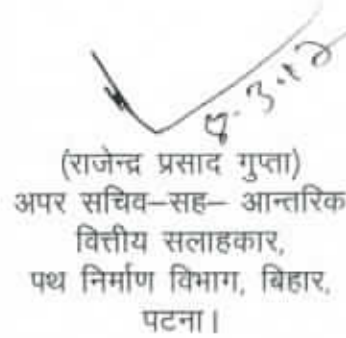 8.3.12
(राजेन्द्र प्रसाद गुप्ता)
अपर सचिव–सह– आन्तरिक
वित्तीय सलाहकार,
पथ निर्माण विभाग, बिहार,
पटना।